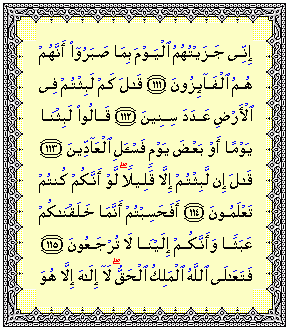 إِنِّى جَزَيْتُهُمُ ٱلْيَوْمَ بِمَا صَبَرُوٓا۟ أَنَّهُمْ
هُمُ ٱلْفَآئِزُونَ ﴿١١١﴾ قَٰلَ كَمْ لَبِثْتُمْ فِى
ٱلْأَرْضِ عَدَدَ سِنِينَ ﴿١١٢﴾ قَالُوا۟ لَبِثْنَا
يَوْمًا أَوْ بَعْضَ يَوْمٍ فَسْـَٔلِ ٱلْعَآدِّينَ ﴿١١٣﴾
قَٰلَ إِن لَّبِثْتُمْ إِلَّا قَلِيلًا ۖ لَّوْ أَنَّكُمْ كُنتُمْ
تَعْلَمُونَ ﴿١١٤﴾ أَفَحَسِبْتُمْ أَنَّمَا خَلَقْنَٰكُمْ
عَبَثًا وَأَنَّكُمْ إِلَيْنَا لَا تُرْجَعُونَ ﴿١١٥﴾
فَتَعَٰلَى ٱللَّهُ ٱلْمَلِكُ ٱلْحَقُّ ۖ لَآ إِلَٰهَ إِلَّا هُوَ